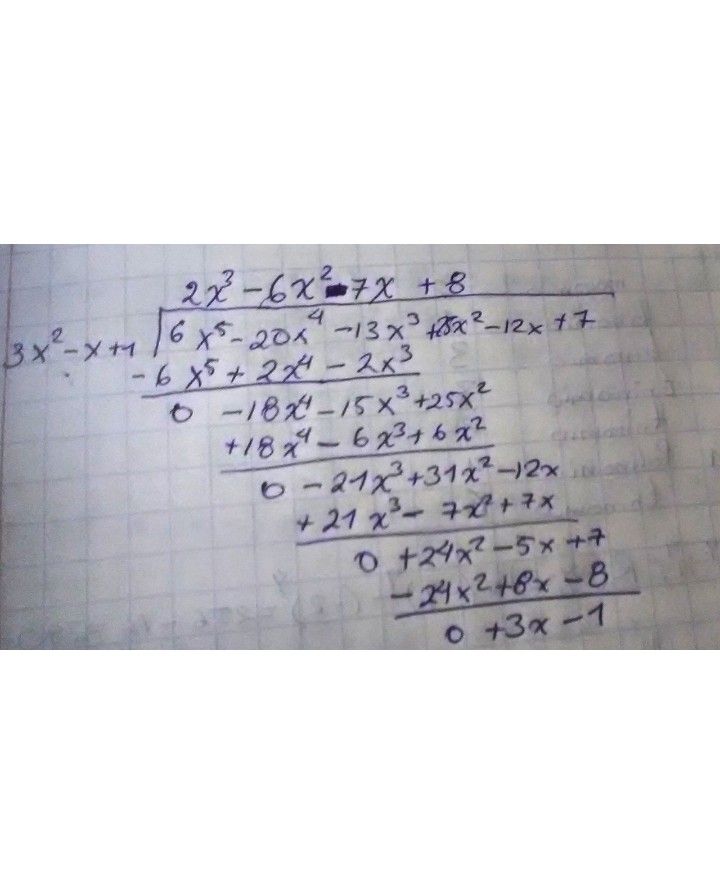 2x³ - 6x² - 7x + 8
3x² - x + 1 6x⁵ - 20x⁴ - 13x³ + 25x² - 12x + 7
- 6x⁵ + 2x⁴ - 2x³
0 - 18x⁴ - 15x³ + 25x²
+ 18x⁴ - 6x³ + 6x²
0 - 21x³ + 31x² - 12x
+ 21x³ - 7x² + 7x
0 + 24x² - 5x + 7
- 24x² + 8x - 8
0 + 3x - 1